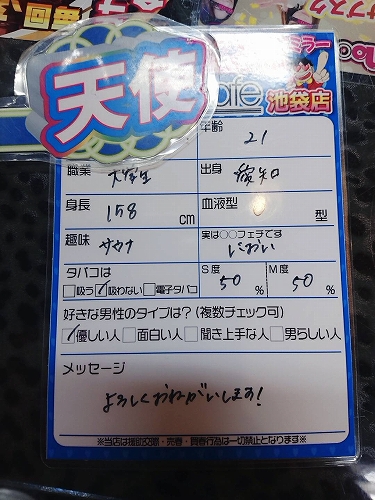 天使
afe
ミラー
池袋店
年齢 21
職業 大学生 出身 愛知
身長 158 cm 血液型 O 型
趣味 サウナ 実は○○フェチです においー
タバコは S度 M度
□吸う □吸わない □電子タバコ 50 % 50 %
好きな男性のタイプは?(複数チェック可)
□優しい人 □面白い人 □聞き上手な人 □男らしい人
メッセージ
よろしくおねがいします!
※当店は援助交際・売春・買春行為は一切禁止となります※